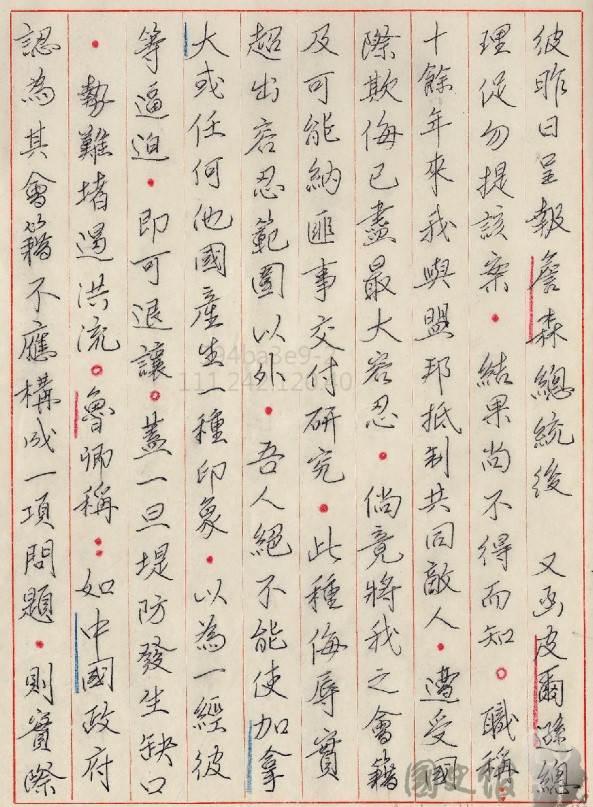 彼昨日呈報詹森總統後　又函皮爾遜總
理促勿提該案．結果尚不得而知。職稱：
十餘年來我與盟邦抵制共同敵人．遭受國
際欺侮已盡最大容忍．倘竟將我之會籍
及可能納匪事交付研究．此種侮辱實
超出容忍範圍以外．吾人絕不能使加拿
大或任何他國產生一種印象．以為一經彼
等逼迫．即可退讓。蓋一旦堤防發生缺口
．勢難堵遏洪流。魯卿稱：如中國政府
認為其會籍不應構成一項問題．則實際